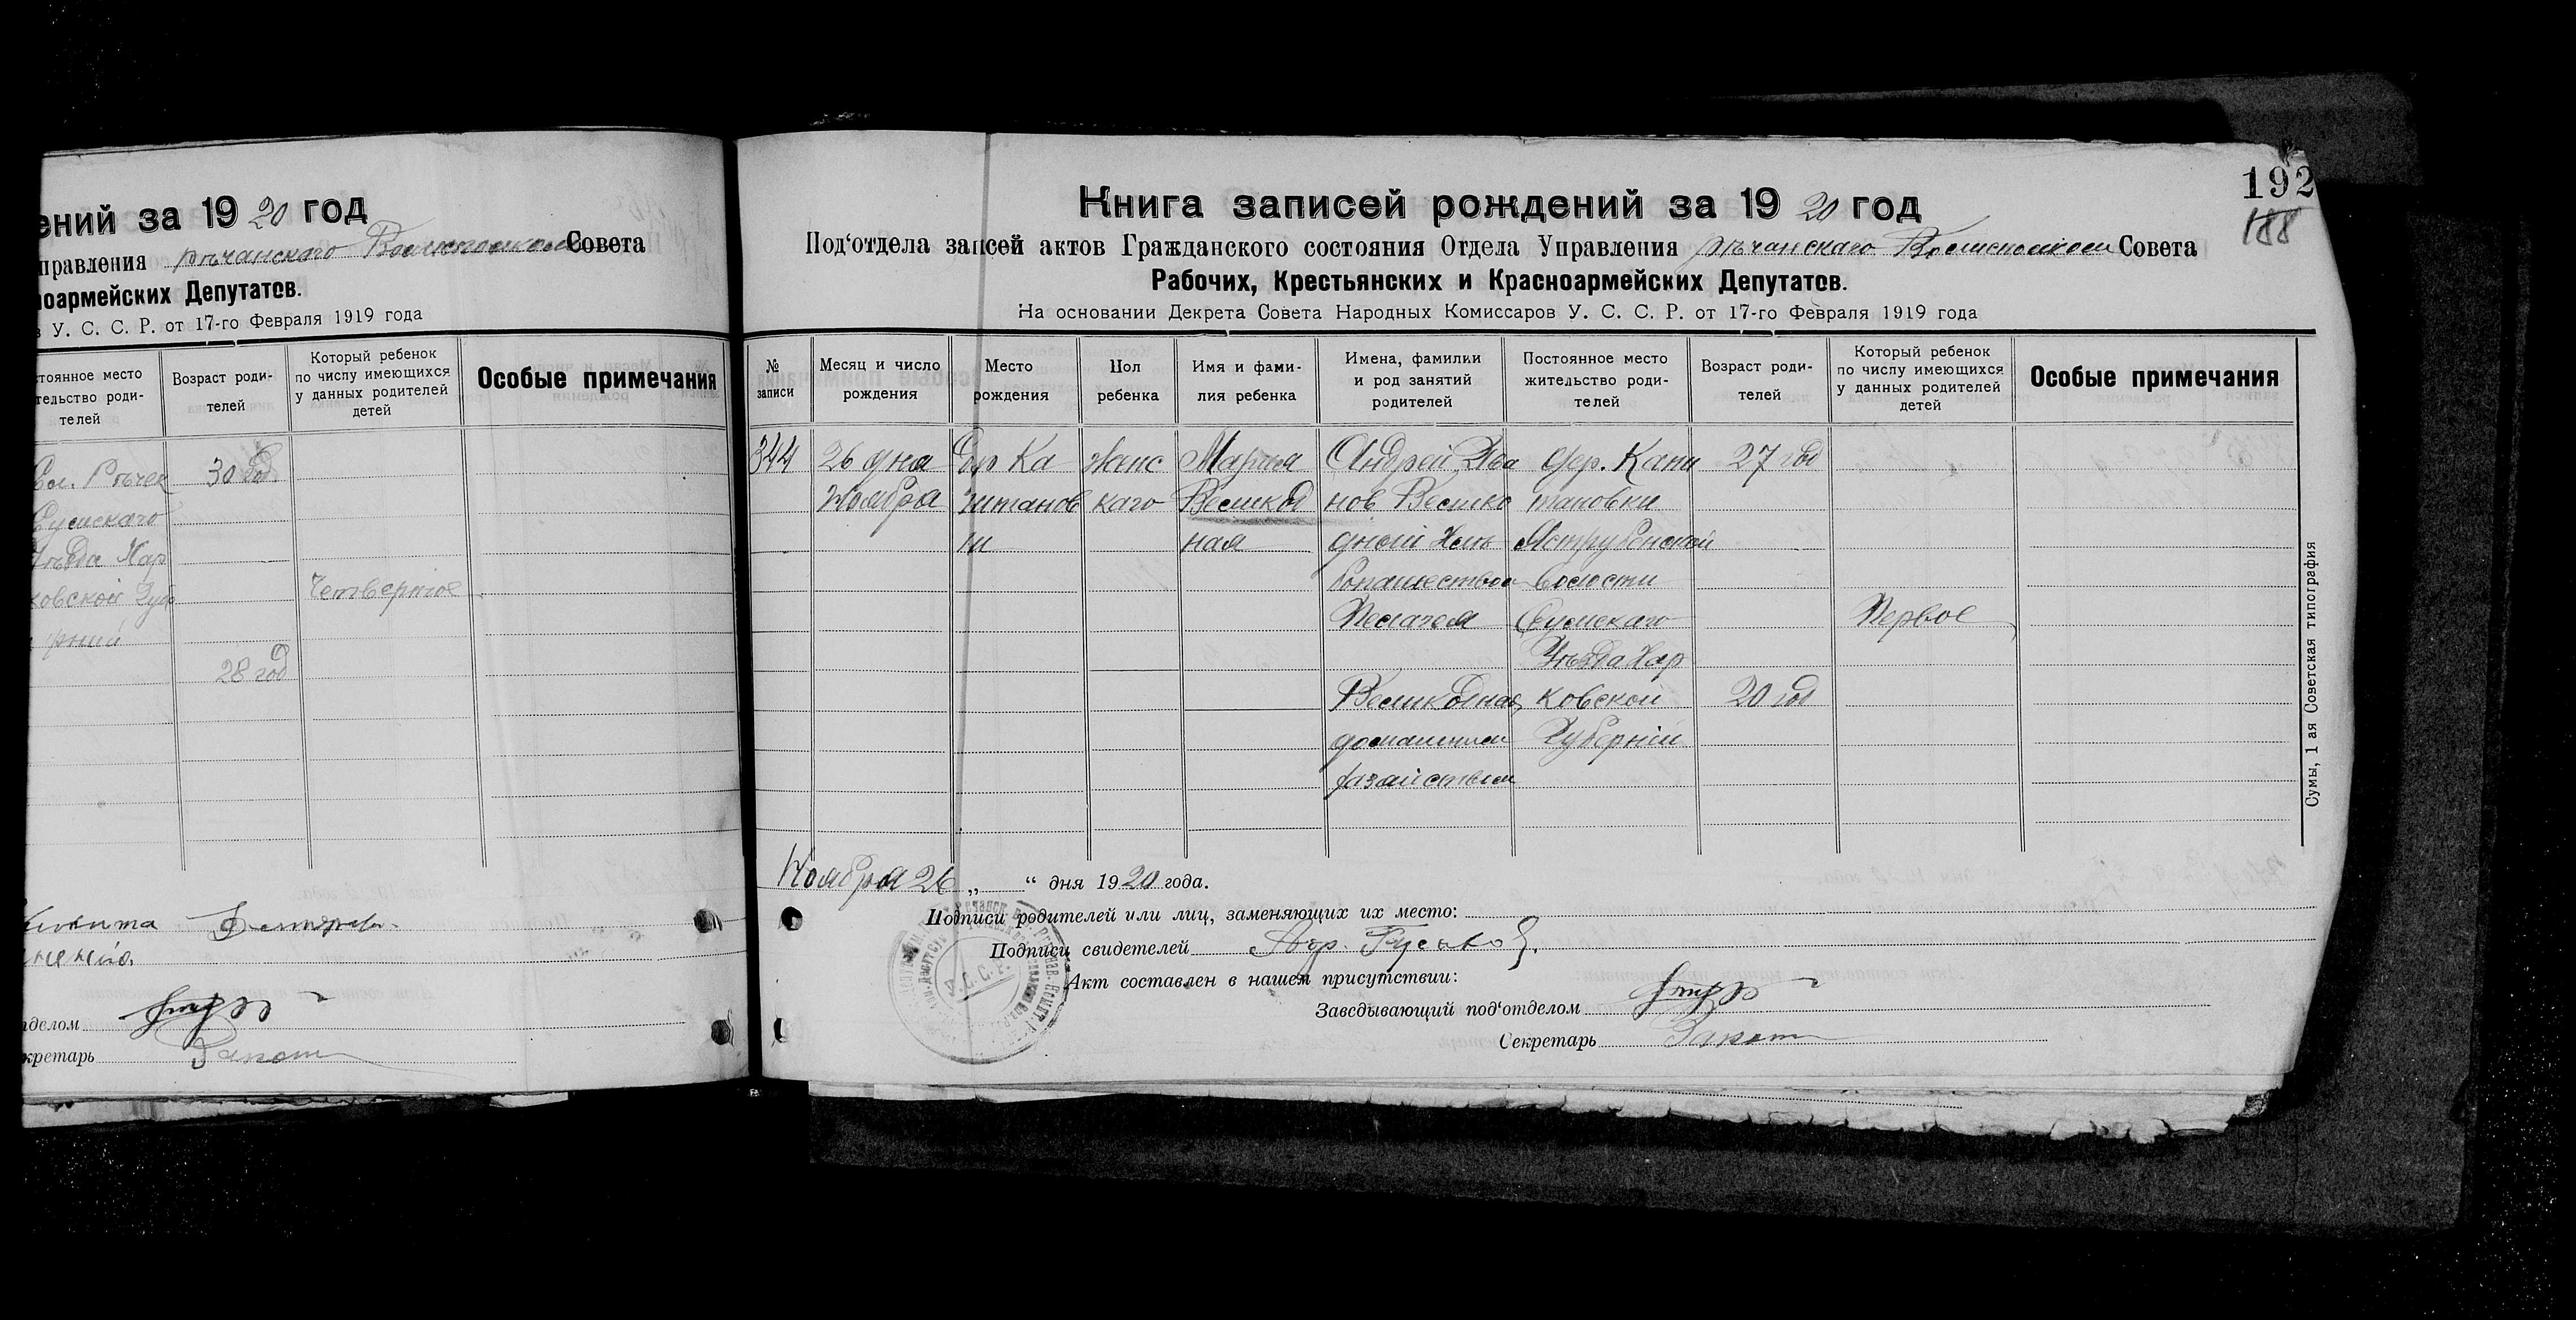 ений за 1920 год
правления рѣчанскаго Волисполком Совета
ноармейских Депутатов.
в У. С. С. Р. от 17-го Февраля 1919 года
стоянное место
тельство роди-
телей
Возраст роди-
телей
Который ребенок
по числу имеющихся
у данных родителей
детей
Особые примечания
Рѣчек
30 год
Сумскаго
уѣзда Хар
ковской Губ
Четвертое
ерніи
28 год
тделом
кретарь
192
188
Книга записей рождений за 1920 год
Под‘отдела запсей актов Гражданского состояния Отдела Управления рѣчанскаго Волисполком Совета
Рабочих, Крестьянских и Красноармейских Депутатов.
На основании Декрета Совета Народных Комиссаров У. С. С. Р. от 17-го Февраля 1919 года
№
записи
Месяц и число
рождения
Место
рождения
Пол
ребенка
Имя и фами-
лия ребенка
Имена, фамилии
и род занятий
родителей
Постоянное место
жительство роди-
телей
Возраст роди-
телей
Который ребенок
по числу имеющихся
у данных родителей
детей
Особые примечания
344 26 дня Ка Женс Мария Андрей Ива дер. Капи 27 год
Ноября питанов каго Великод нов Велико тановки
ки ная дный Хлѣ Яструбенской
бопашество Волости
Сумскаго Первое
Уѣзда Хар
Великодная ковской 20 год
домашним Губерніи
хазайством
Ноября 26 „ “ дня 1920 года.
Подписи родителей или лиц, заменяющих их место:
Подписи свидетелей
Акт составлен в нашем присутствии:
Заведывающий под‘отделом
Секретарь
У.С.С.Р.
Сумы, 1 ая Советская типография